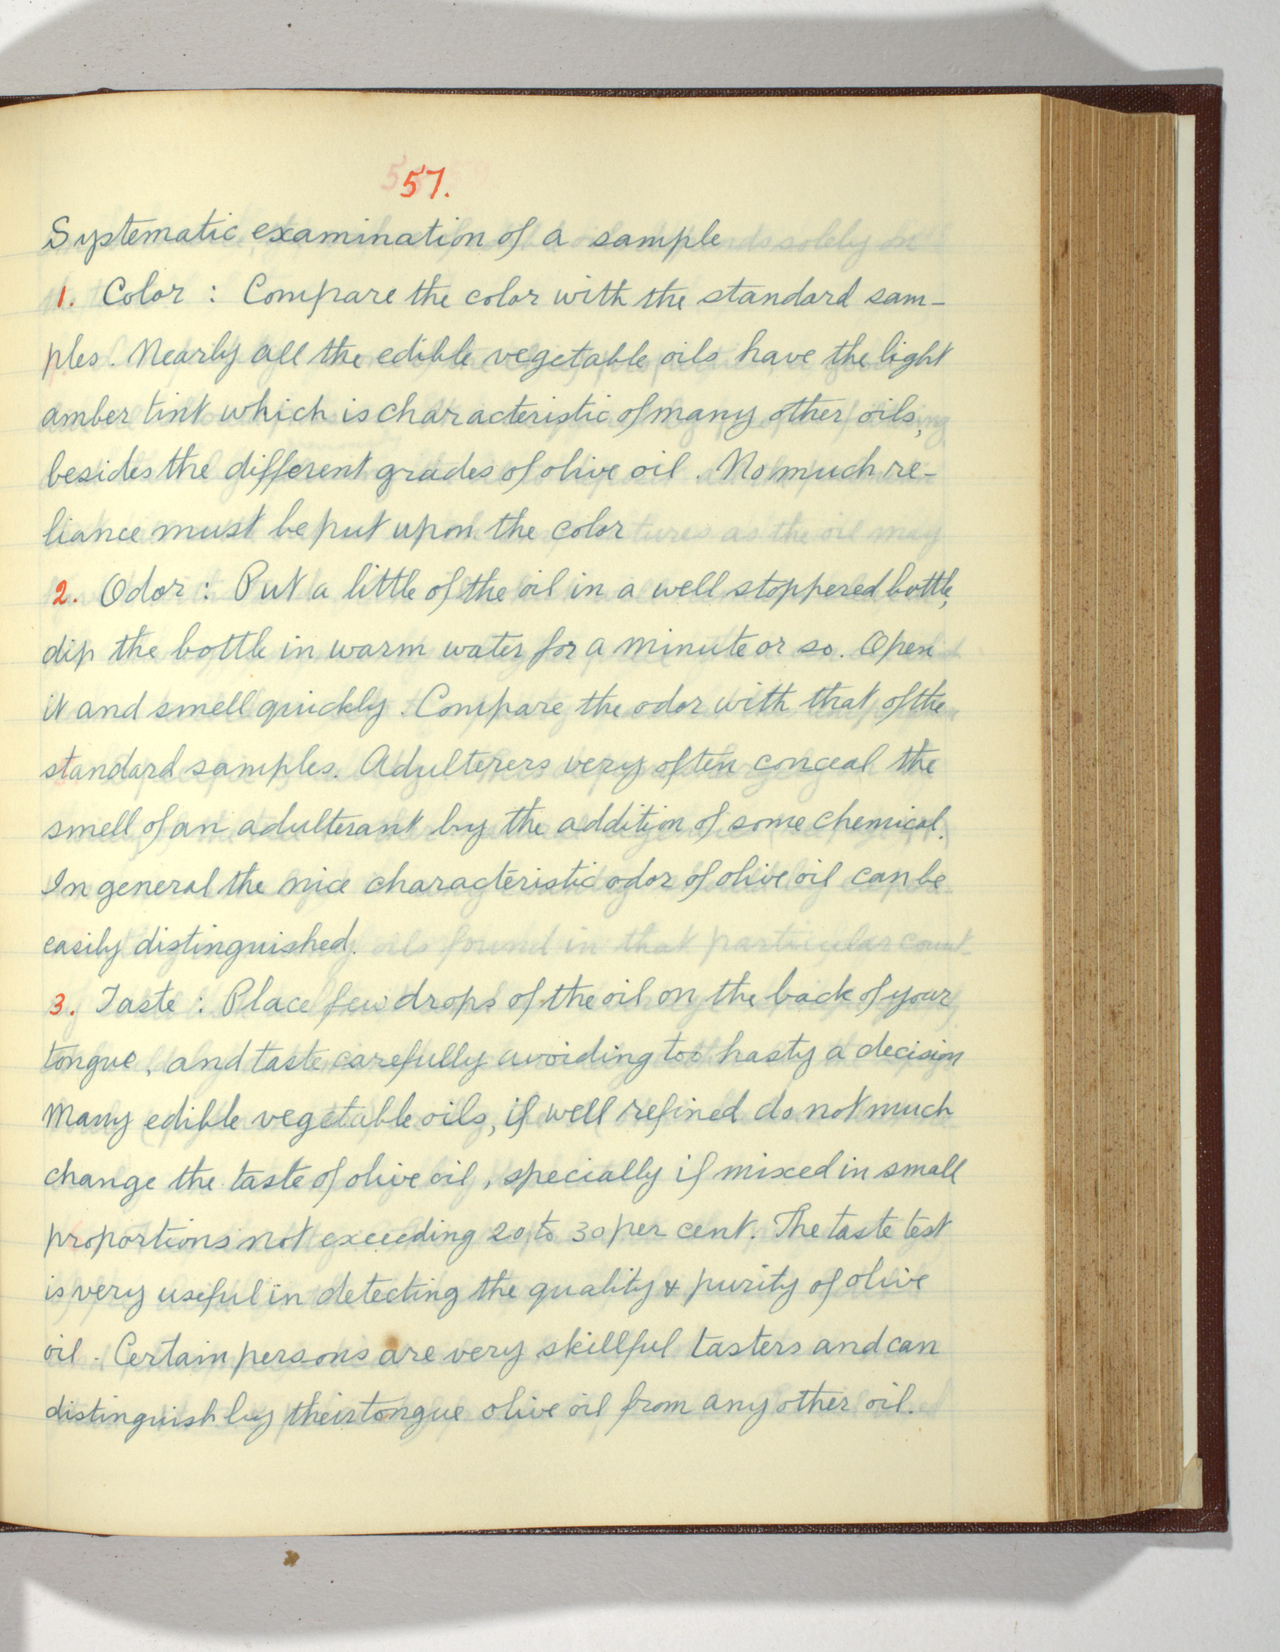 57.
Systematic examination of a sample
1. Color : Compare the color with the standard sam-
ples. Nearly all the edible vegetable oils have the light
amber tint which is characteristic of many other oils,
besides the different grades of olive oil. No much re-
liance must be put upon the color
2. Odor : Put a little of the oil in a well stoppered bottle,
dip the bottle in warm water for a minute or so. Open
it and smell quickly. Compare the odor with that of the
standard samples. Adulterers very often conceal the
smell of an adulterant by the addition of some chemical.
In general the nice characteristic odor of olive oil can be
easily distinguished.
3. Taste : Place few drops of the oil on the back of your
tongue, and taste carefully avoiding too hasty a decision
Many edible vegetable oils, if well refined do not much
change the taste of olive oil, specially if mixed in small
proportions not exceeding 20 to 30 per cent. The taste test
is very useful in detecting the quality & purity of olive
oil. Certain persons are very skillful tasters and can
distinguish by their tongue olive oil from any other oil.